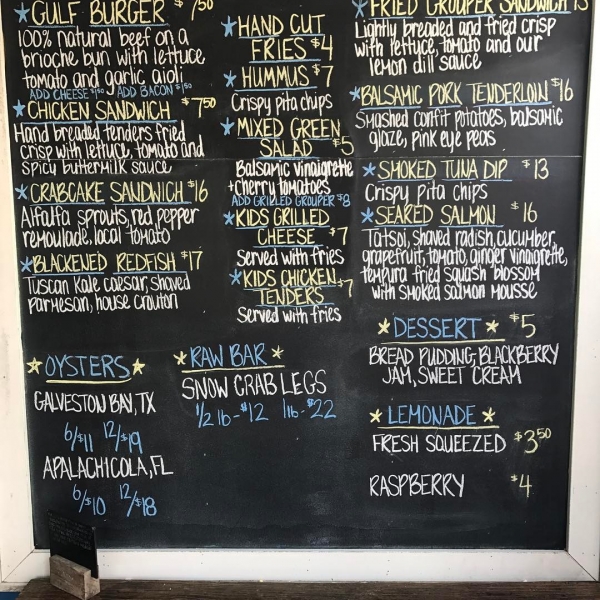 GULF BURGER $7.50
100% natural beef on a
brioche bun with lettuce
tomato and garlic aioli
ADD CHEESE $1.50 ADD BACON $1.50
CHICKEN SANDWICH $7.50
Hand breaded tenders fried
crisp with lettuce, tomato and
spicy buttermilk sauce
CRABCAKE SANDWICH $16
Alfalfa sprouts, red pepper
remoulade, local tomato
BLACKENED REDFISH $17
Tuscan kale caesar, shaved
parmesan, house crouton
HAND CUT
FRIES $4
HUMMUS $7
Crispy pita chips
MIXED GREEN
SALAD $5
Balsamic vinaigrette
+ cherry tomatoes
ADD GRILLED GROUPER $8
KIDS GRILLED
CHEESE $7
served with fries
KIDS CHICKEN
TENDERS $7
Served with fries
FRIED GROUPER SANDWICH
Lightly breaded and fried crisp
with lettuce, tomato and our
lemon dill sauce
BALSAMIC PORK TENDERLOIN $16
Smashed confit potatoes, balsamic
glaze, pink eye peas
SMOKED TUNA DIP $13
Crispy pita chips
SEARED SALMON $16
Tatsoi, shaved radish, cucumber,
grapefruit, tomato, ginger vinaigrette,
tempura fried squash blossom
with smoked salmon mousse
OYSTERS
GALVESTON BAY, TX
6/$11 12/$19
APALACHICOLA, FL
6/$10 12/$18
RAW BAR
SNOW CRAB LEGS
1/2 lb - $12 1lb - $22
DESSERT $5
BREAD PUDDING, BLACKBERRY
JAM, SWEET CREAM
LEMONADE
FRESH SQUEEZED $3.50
RASPBERRY $4